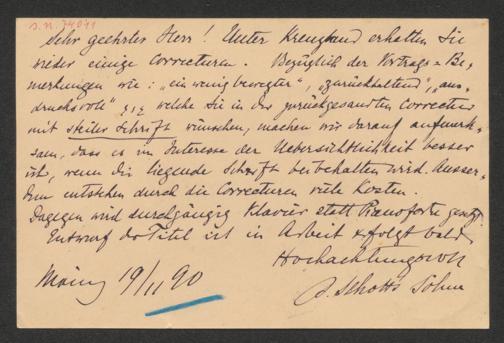 Sehr geehrter Herr! Unter Kreuzband erhalten Sie
wieder einige Correcturen. Bezüglich der Vortrags=Be-
merkungen wie: „ein wenig bewegter", „zurückhaltend", „aus-
drucksvoll" welche Sie in der zurückgesandten Correctur
mit steiler Schrift wünschen, machen wir darauf aufmerk-
sam, dass es im Interesse der Uebersichtlichkeit besser
ist, wenn die liegende Schrift beibehalten wird. Ausser-
dem entstehen durch die Correcturen viele Kosten.
Dagegen wird durchgängig Klavier statt Pianoforte gesetzt.
Entwurf do Titel ist in Arbeit & folgt bald.
Hochachtungsvoll
Mainz 19/11 90
B. Schott's Söhne